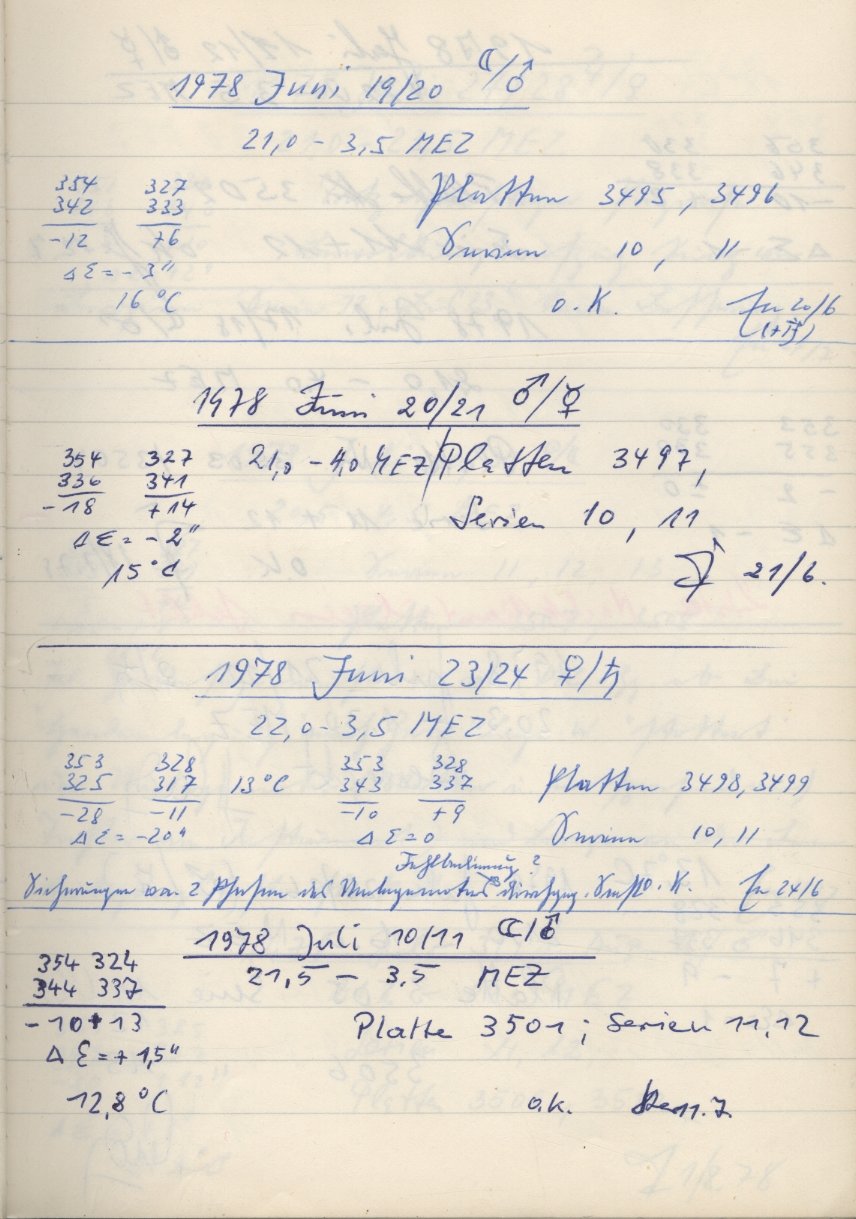 1978 Juni 19/20 ☾/♂
21,0 – 3,5 MEZ
354 327 Platten 3495, 3496
342 333
-12 +6 Serien 10, 11
Δ Ɛ = - 3"
16 °C o.K. 20/6
1978 Juni 20/21 ♂/☿
354 327 21,0 – 4,0 MEZ/Platten 3497,
336 341
-18 +14 Serien 10, 11
Δ Ɛ = - 2"
15°C 21/6.
1978 Juni 23/24 ♀/♄
22,0 – 3,5 MEZ
353 328 353 328
325 317 13°C 343 337 Platten 3498, 3499
-28 -11 -10 +9
Δ Ɛ = -20" Δ Ɛ = 0 Serien 10, 11
Fehlbedienung?
Sicherungen von 2 Phasen des Umlegemotors durchgeg. Sonst o.K. 24/6
1978 Juli 10/11 ☾/♂
354 324 21,5 – 3,5 MEZ
344 337
-10 +13 Platte 3501; Serien 11, 12
Δ Ɛ = + 1,5"
12,8 °C o.k. 11.7.